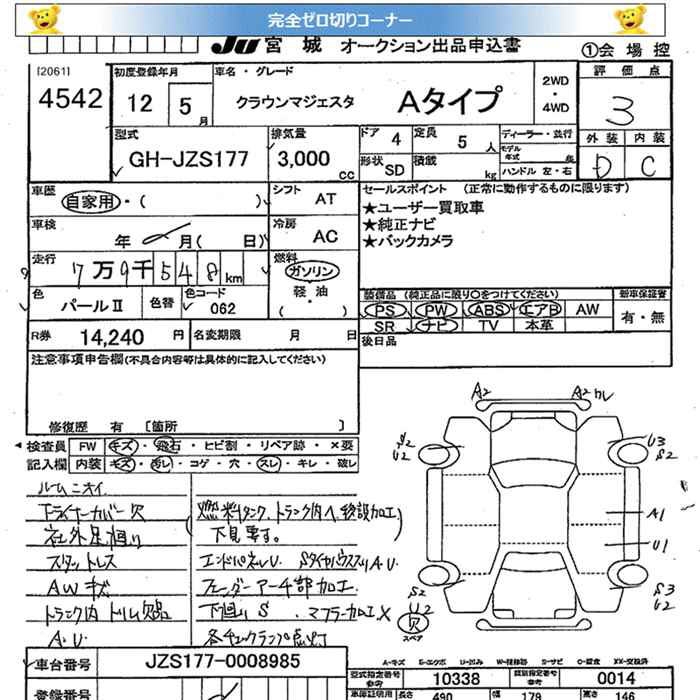 完全ゼロ切りコーナー
JU 宮城 オークション出品申込書
①会場控
[2061]
4542
初度登録年月
12 5月
車名・グレード
クラウンマジェスタ Aタイプ
2WD・4WD
評価点
3
外装 内装
D C
型式
GH-JZS177
排気量
3,000cc
ドア 4
定員 5人
形状 SD
積載 kg
ディーラー・並行
モデル年式 年
ハンドル 左・右
車歴
自家用・( )
シフト AT
車検
年 月( 日)
冷房 AC
走行
7万9千548km
燃料
ガソリン
軽・油
( )
色
パールⅡ
色替
色コード
062
R券 14,240円
名変期限 月 日
セールスポイント (正常に動作するものに限ります)
★ユーザー買取車
★純正ナビ
★バックカメラ
装備品(純正品に限り〇をつけてください)
PS PW ABS エアB AW
SR ナビ TV 本革
新車保証書
有・無
後日品
注意事項申告欄(不具合内容等は具体的に記入してください)
修復歴 有 [箇所 ]
検査員記入欄
FW キズ・飛石・ヒビ割・リペア跡・×要
内装 キズ・汚レ・コゲ・穴・スレ・キレ・破レ
ルームニオイ
下ライナーカバー欠
社外足廻り
スタットレス
AWキズ
トランク内トリム欠品
A.U.
(燃料タンク、トランク内へ移設加工)
下見要す。
エンドパネルU. SタイヤハウススリA.U
フェンダーアーチ部加工.
下廻りS. マフラー加工X
各チェックランプ点灯
A2
A2 ワレ
U2
U3
S2
A1
U1
S2
U2
S3
U2
欠
スペア
A-キズ E-エクボ U-凹み W-補修跡 S-サビ C-腐食 XX-交換済
車台番号 JZS177-0008985
型式指定番号 参考 10338
類別指定番号 参考 0014
登録番号
長さ 490 幅 179 高さ 146